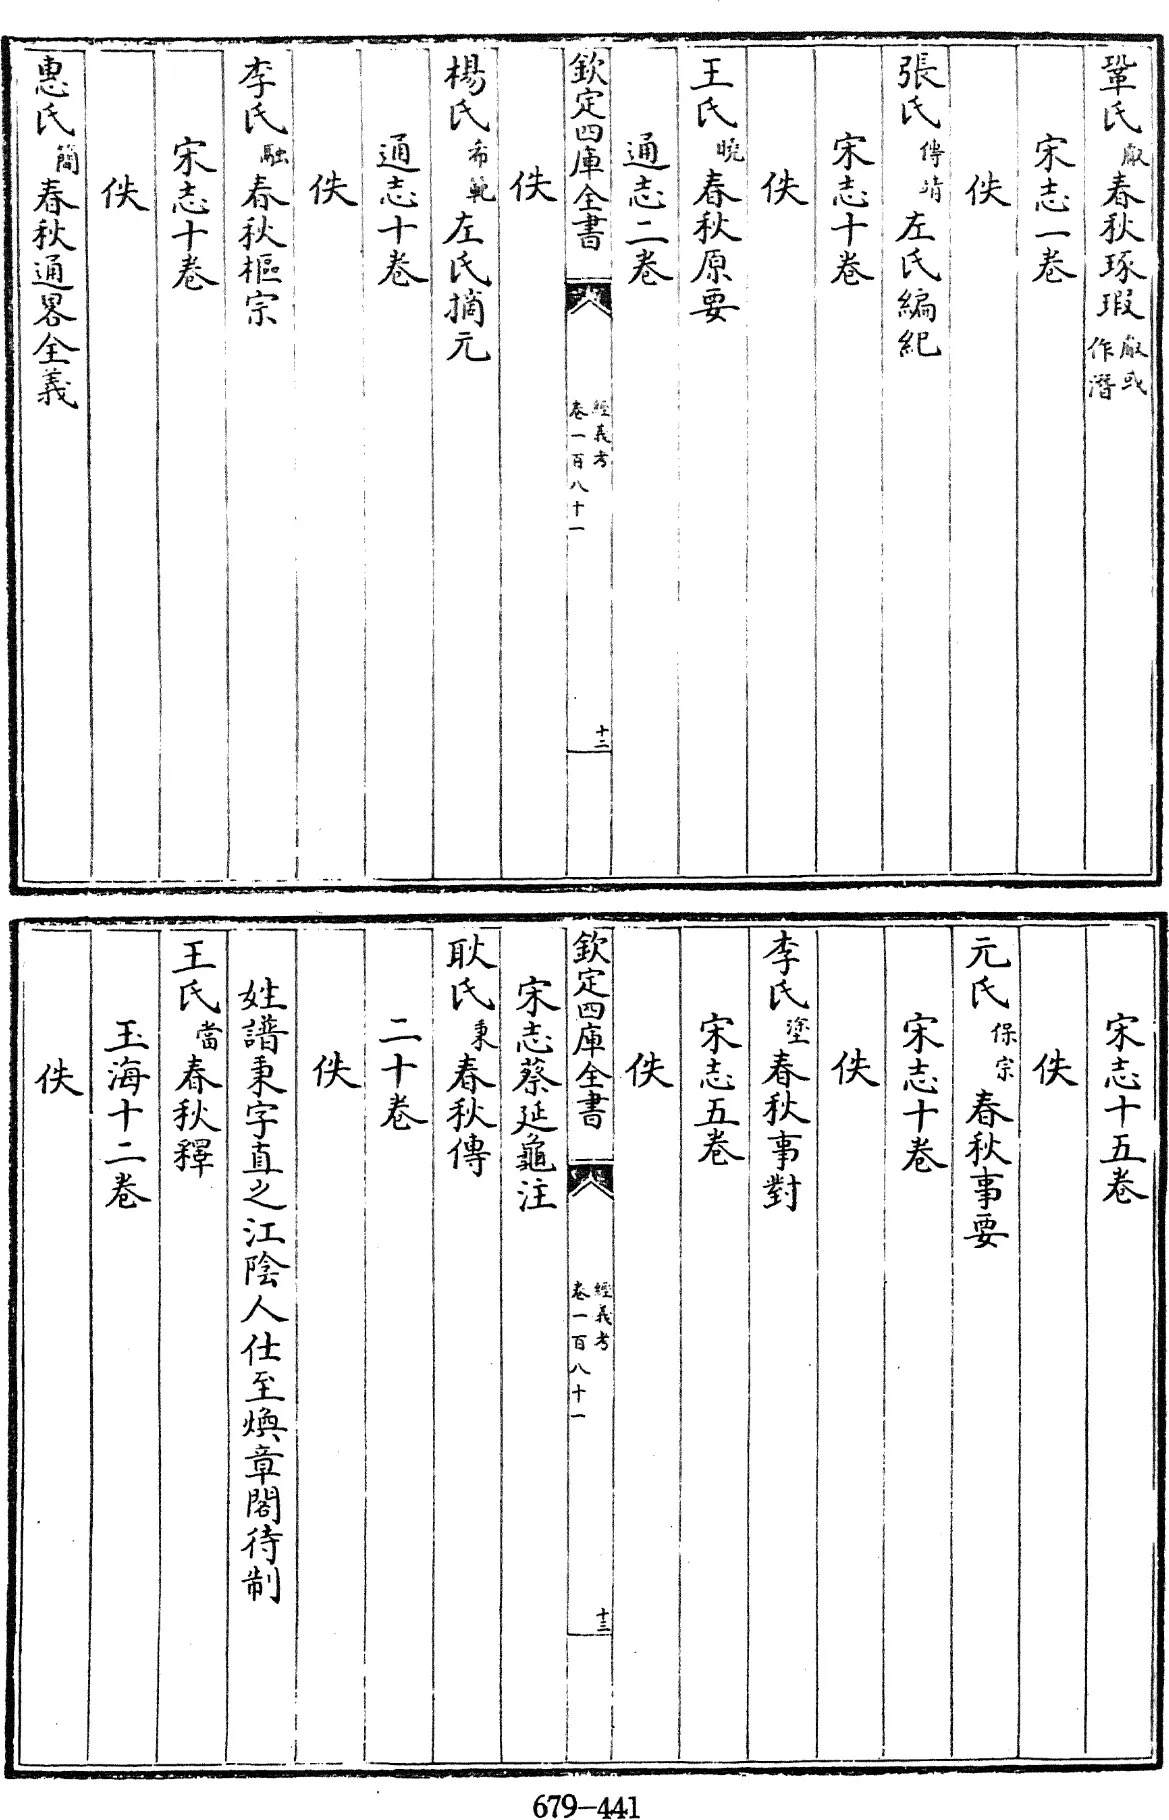 鞏氏叡春秋琢瑕叡或作潛
宋志一卷
佚
張氏傳靖左氏編紀
宋志十卷
佚
王氏曉春秋原要
通志二卷
欽定四庫全書 經義考卷一百八十一 十二
佚
楊氏希範左氏摘元
通志十卷
佚
李氏融春秋樞宗
宋志十卷
佚
惠氏簡春秋通畧全義
宋志十五卷
佚
元氏保宗春秋事要
宋志十卷
佚
李氏塗春秋事對
宋志五卷
佚
欽定四庫全書 經義考卷一百八十一 十三
宋志蔡延龜注
耿氏秉春秋傳
二十卷
佚
姓譜秉字直之江陰人仕至煥章閣待制
王氏當春秋釋
玉海十二卷
佚
679-441